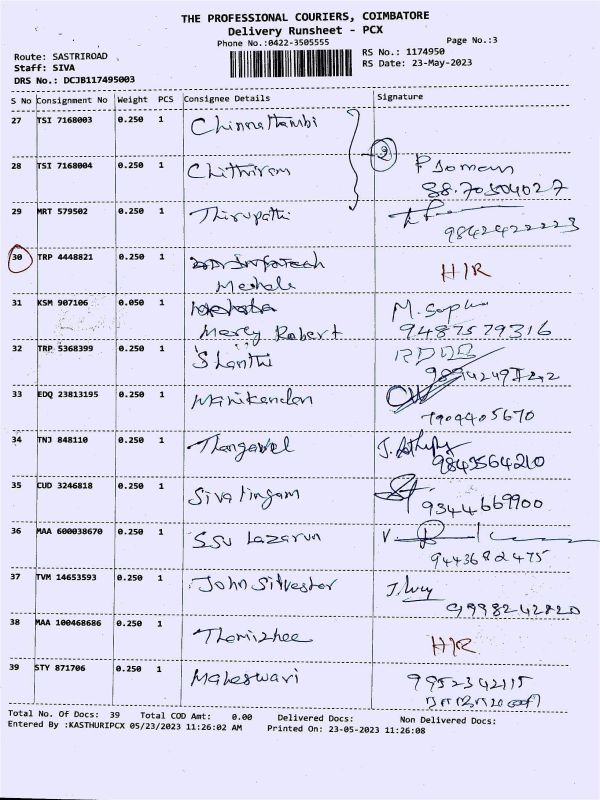 THE PROFESSIONAL COURIERS, COIMBATORE
Delivery Runsheet - PCX
Phone No.:0422-3505555
Page No.:3
Route: SASTRIROAD
RS No.: 1174950
Staff: SIVA
RS Date: 23-May-2023
DRS No.: DCJB117495003
S No Consignment No Weight PCS Consignee Details Signature
27 TSI 7168003 0.250 1 Chinnathambi
28 TSI 7168004 0.250 1 Chithiram 2
88.70304027
29 MRT 579502 0.250 1 Thirupathi
9842422223
30 TRP 4448821 0.250 1 H/R
Mekala
31 KSM 907106 0.050 1
Mercy Robert 9487579316
32 TRP 5368399 0.250 1 Shanthi
33 EDQ 23813195 0.250 1 Manikandan
7904405670
34 TNJ 848110 0.250 1 Thangavel
9843564210
35 CUD 3246818 0.250 1 Sivalingam
9344669900
36 MAA 600038670 0.250 1 SSV Lazarun
9443682475
37 TVM 14653593 0.250 1 John Silvester J. Lucy
38 MAA 100468686 0.250 1 H/R
39 STY 871706 0.250 1 Maheswari 9952342115
Total No. Of Docs: 39 Total COD Amt: 0.00 Delivered Docs: Non Delivered Docs:
Entered By :KASTHURIPCX 05/23/2023 11:26:02 AM Printed On: 23-05-2023 11:26:08